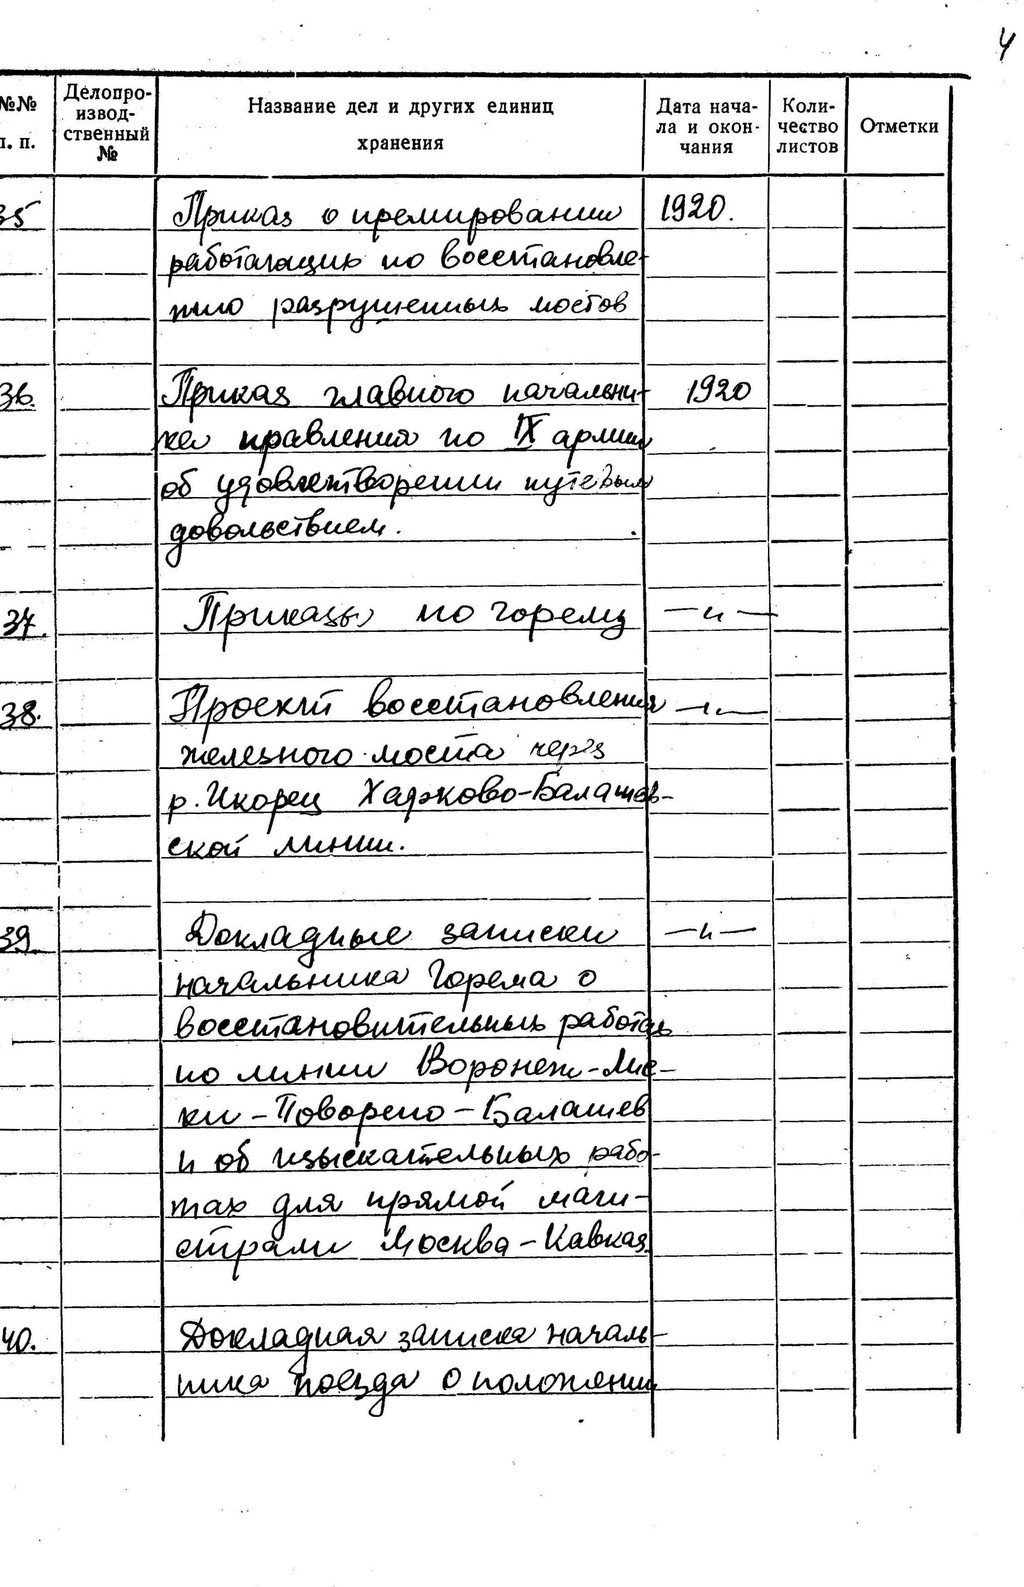 4
№№ п. п.
Делопроизводственный №
Название дел и других единиц хранения
Дата начала и окончания
Количество листов
Отметки
35 Приказ о премировании 1920.
работающих по восстановле-
нию разрушенных мостов
36. Приказ главного начальни- 1920
ка правления по IX армии
об удовлетворении путевым
довольствием.
37. Приказы по горему —и—
38. Проект восстановления —и—
железного моста через
р. Икорец Харково-Балашов-
ской линии.
39. Докладные записки —и—
начальника Горема о
восстановительных работах
по линии Воронеж-Лис-
ки-Поворено-Балашев
и об изыскательных рабо-
тах для прямой маги-
страли Москва-Кавказ.
40. Докладная записка началь-
ника поезда о положении